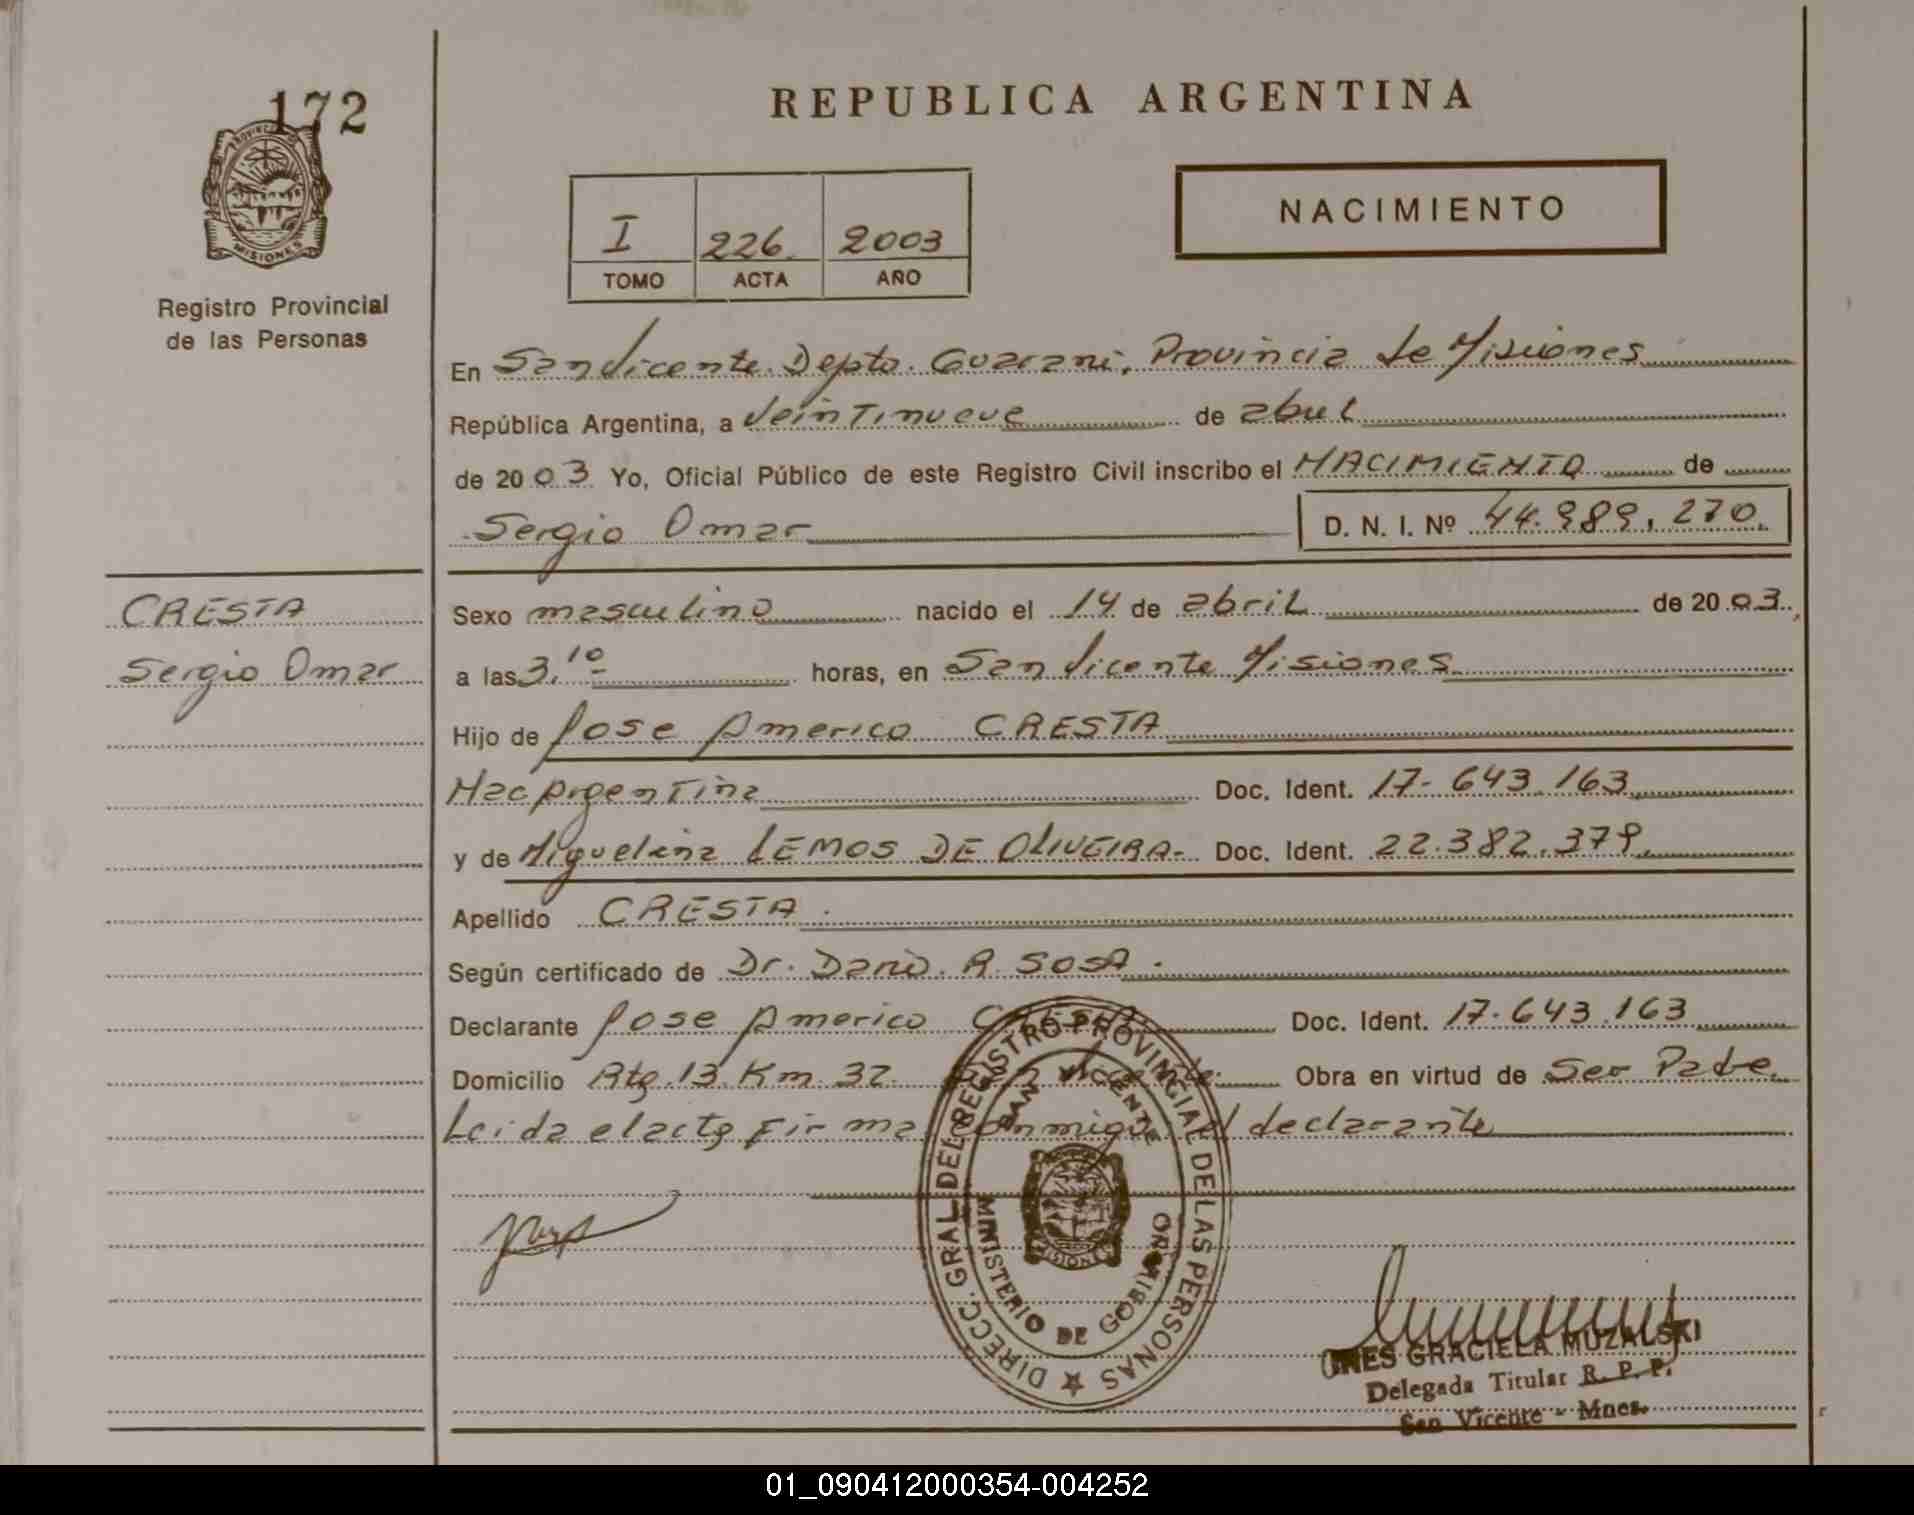 172
PROVINCIA DE
MISIONES
Registro Provincial
de las Personas
CRESTA
Sergio Omar
REPUBLICA ARGENTINA
I 226 2003
TOMO ACTA AÑO
NACIMIENTO
En San Vicente. Depto. Guarani, Provincia de Misiones
República Argentina, a Veintinueve de abril
de 2003 Yo, Oficial Público de este Registro Civil inscribo el NACIMIENTO de
Sergio Omar D. N. I. Nº 44.989.270.
Sexo masculino nacido el 14 de abril de 2003
a las 3,10 horas, en San Vicente Misiones
Hijo de Jose Americo CRESTA
Nac Argentina Doc. Ident. 17.643.163
y de Miguelina LEMOS DE OLIVEIRA- Doc. Ident. 22.382.379.
Apellido CRESTA.
Según certificado de Dr. Dario. A. SOSA.
Declarante Jose Americo CRESTA Doc. Ident. 17.643.163
Domicilio Rta 13 Km 32 San Vicente Obra en virtud de Ser Padre
Leida el acta Firma Conmigo el declarante
DIRECC. GRAL. DEL REGISTRO PROVINCIAL DE LAS PERSONAS
SAN VICENTE
MINISTERIO DE GOBIERNO
INES GRACIELA MUZALSKI
Delegada Titular R. P. P.
San Vicente - Mnes.
01_090412000354-004252